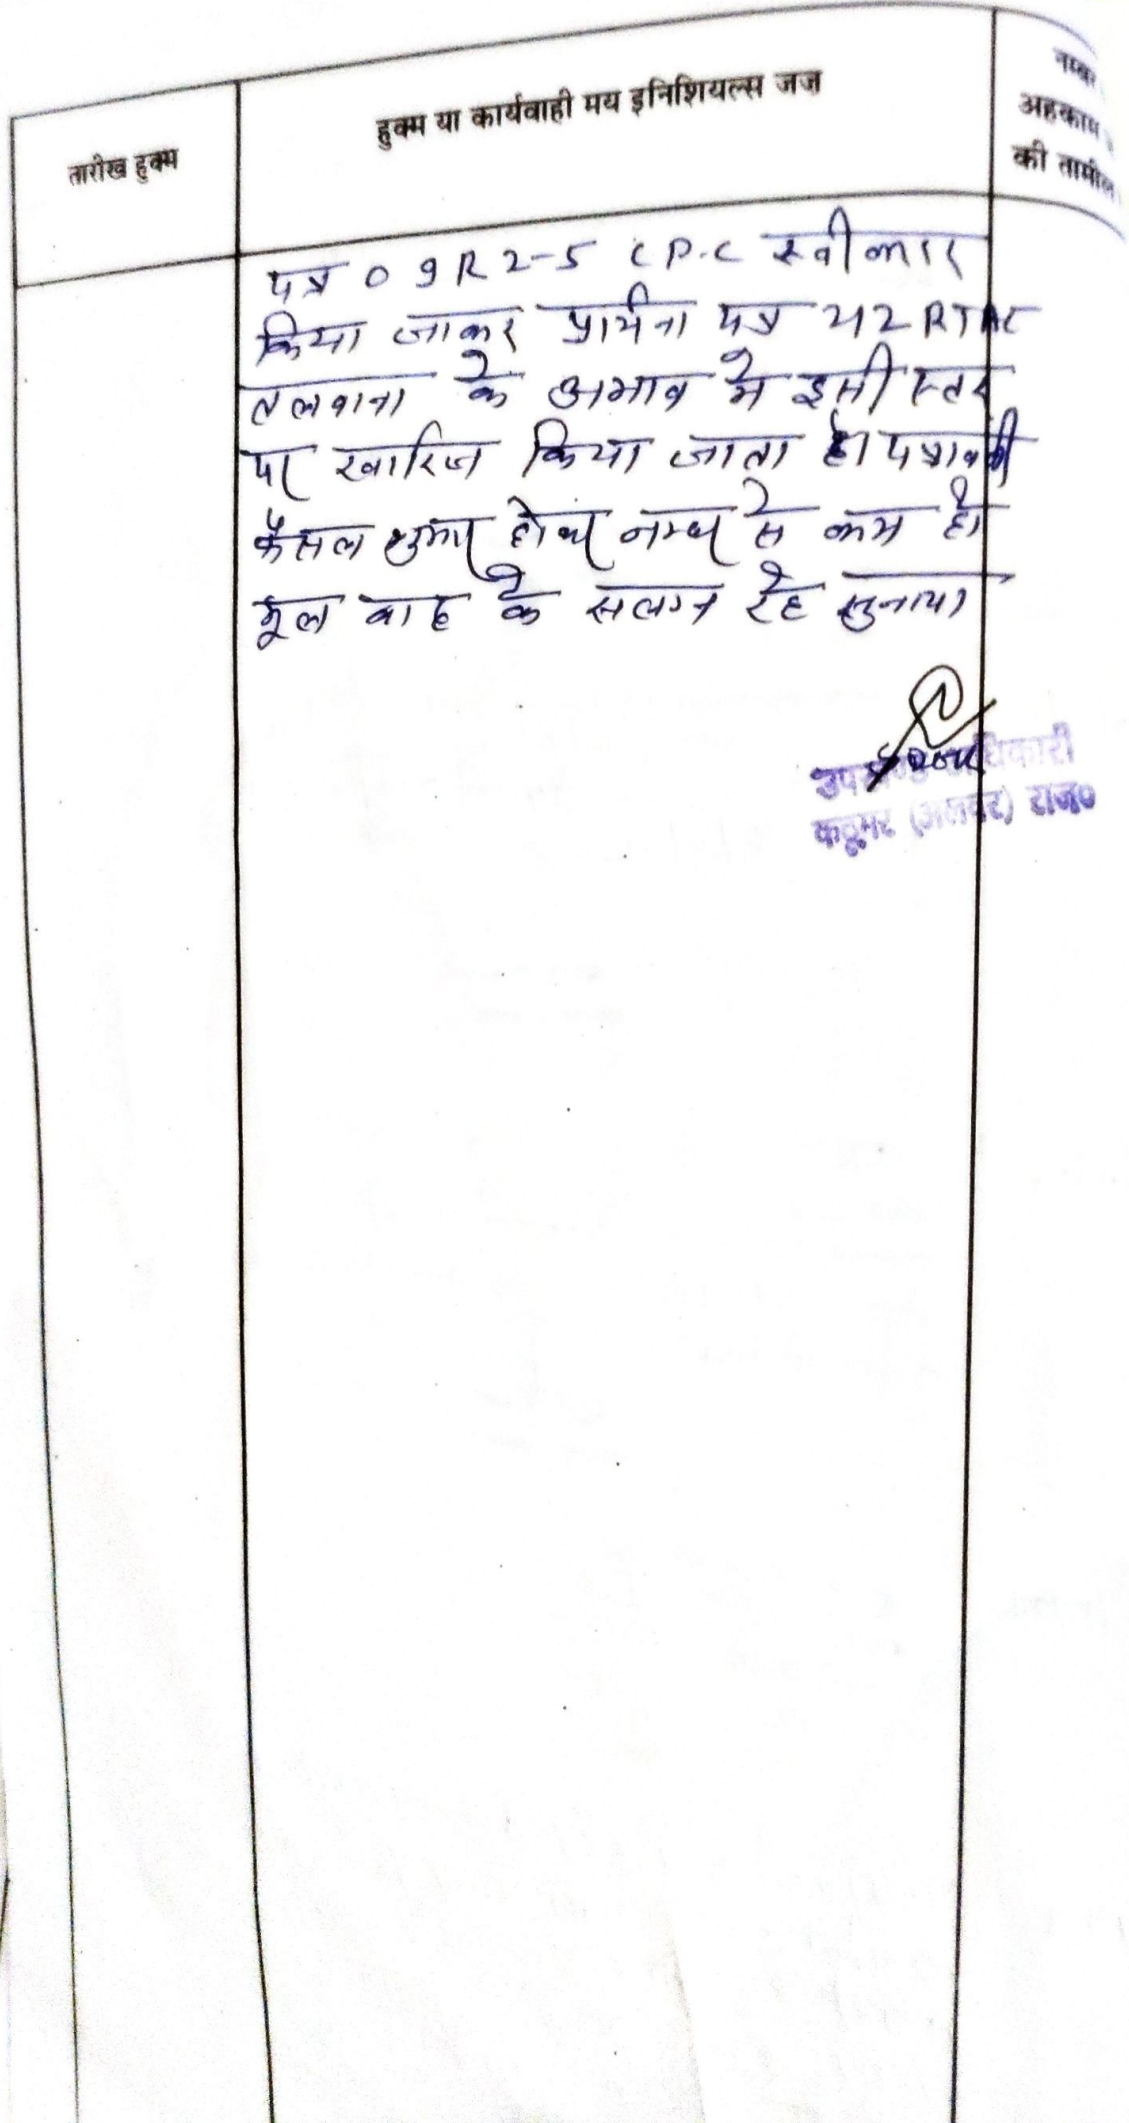 तारीख हुक्म
हुक्म या कार्यवाही मय इनिशियल्स जज
नम्बर
अहकाम
की तामील
पत्र 0 9 R 2-5 C P.C स्वीकार
किया जाकर प्रार्थना पत्र 212 RTAC
तलवाना के अभाव मे इसी स्तर
पर खारिज किया जाता है। पत्रावली
फैसल शुमार होकर नम्बर से कम हो
मूल वाद के सलग्न रहे सुनाया
उपखण्ड अधिकारी
कठूमर (अलवर) राज०